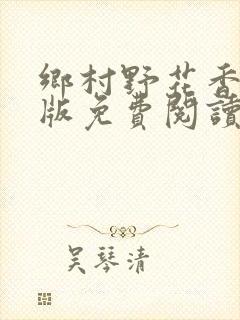 鄉村野花香
版免費閱讀
吴琴清